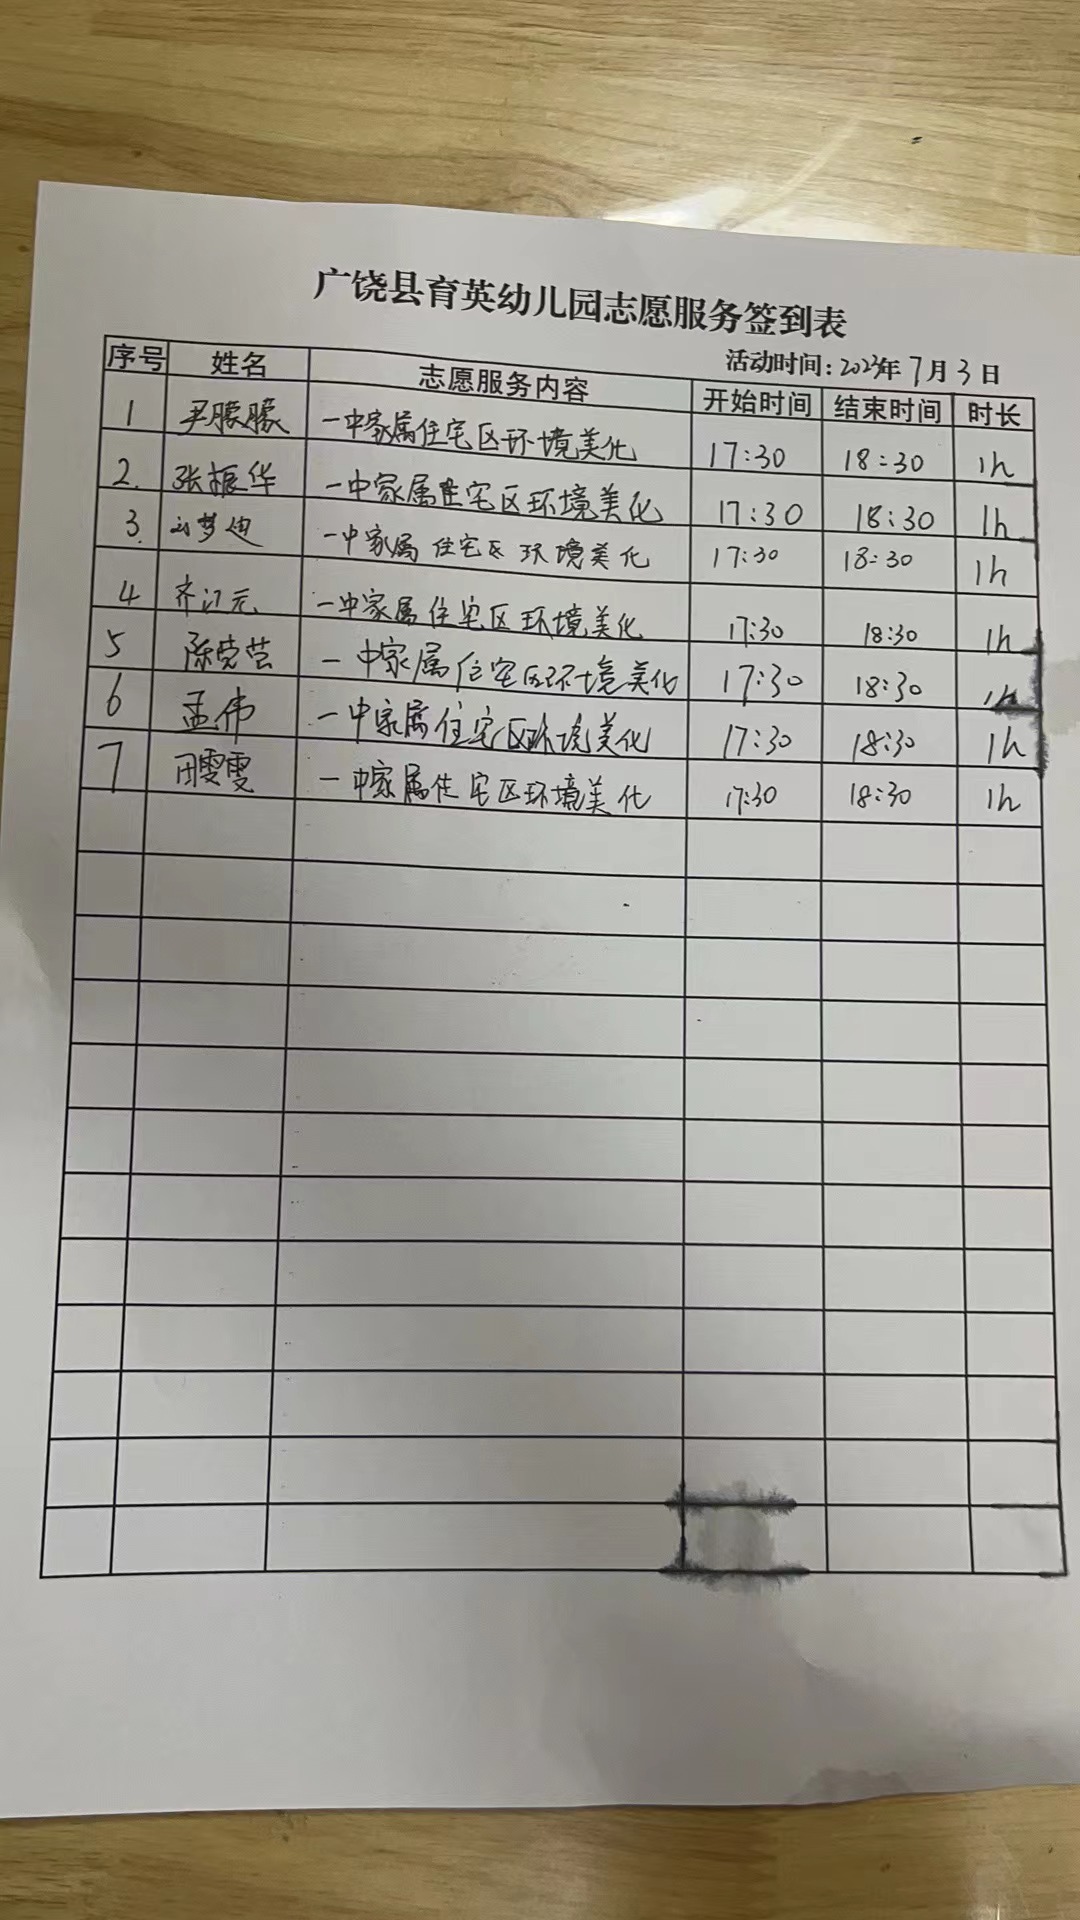 广饶县育英幼儿园志愿服务签到表
活动时间：2023年7月3日
序号 姓名 志愿服务内容 开始时间 结束时间 时长
1 尹朦朦 一中家属住宅区环境美化 17:30 18:30 1h
2. 张振华 一中家属住宅区环境美化 17:30 18:30 1h
3. 梦迪 一中家属住宅区环境美化 17:30 18:30 1h
4 齐江元 一中家属住宅区环境美化 17:30 18:30 1h
5 陈莹莹 一中家属住宅区环境美化 17:30 18:30 1h
6 孟伟 一中家属住宅区环境美化 17:30 18:30 1h
7 田雯雯 一中家属住宅区环境美化 17:30 18:30 1h